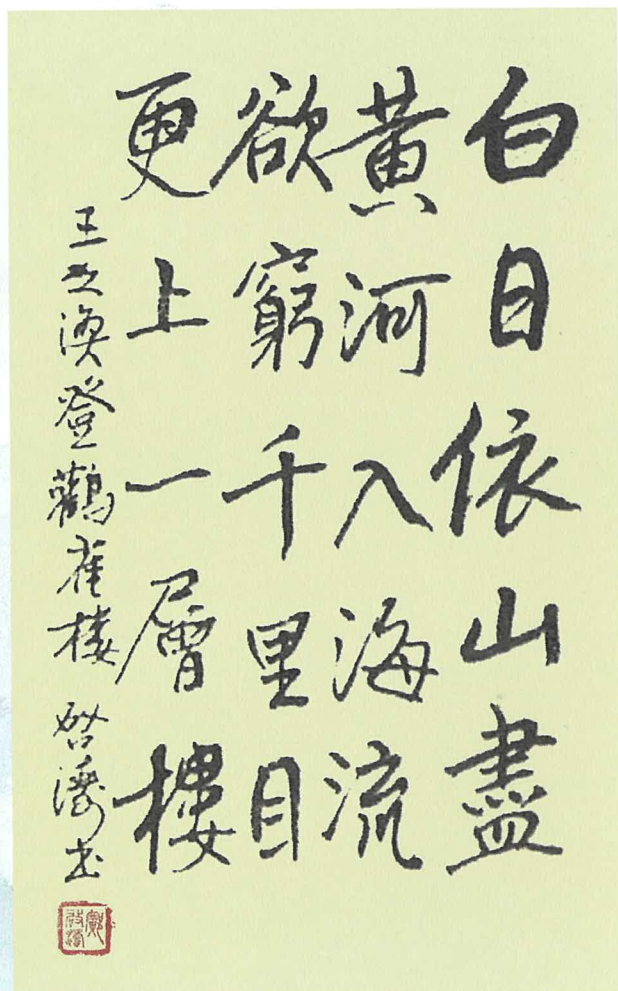 白日依山盡
黃河入海流
欲窮千里目
更上一層樓
王之渙登鸛雀樓 啓濤书